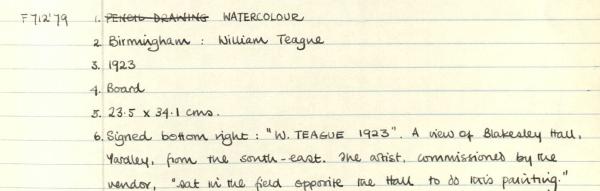 F712'79 1. PENCIL DRAWING WATERCOLOUR
2. Birmingham : William Teague
3. 1923
4. Board
5. 23.5 x 34.1 cms.
6. Signed bottom right : "W. TEAGUE 1923". A view of Blakesley Hall,
Yardley, from the south-east. The artist, commissioned by the
vendor, "sat in the field opposite the Hall to do this painting."